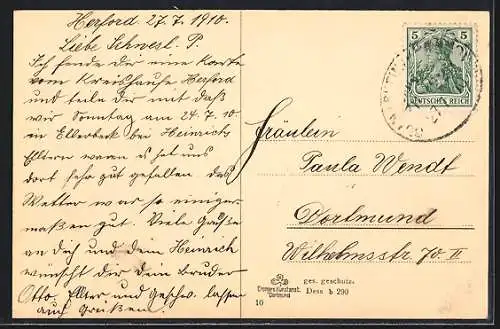 Herford 27.7.1910.
Liebe Schwest. P.
Ich sende dir eine Karte
vom Kreishause Herford
und teile dir mit daß
wir Sonntag am 24.7.10
in Ellerbeck bei Heinrichs
Eltern waren es hat uns
dort sehr gut gefallen das
Wetter war so einiger-
maßen gut. Viele Grüße
an dich und dein Heinrich
wünscht dir dein Bruder
Otto. Elter und Geschw. lassen
auch Grüßen.
5 5
DEUTSCHES REICH
Fräulein
Paula Wendt
Dortmund
Wilhelmsstr. 70. II
ges. geschutz.
Dortmund
Dess b 290
10